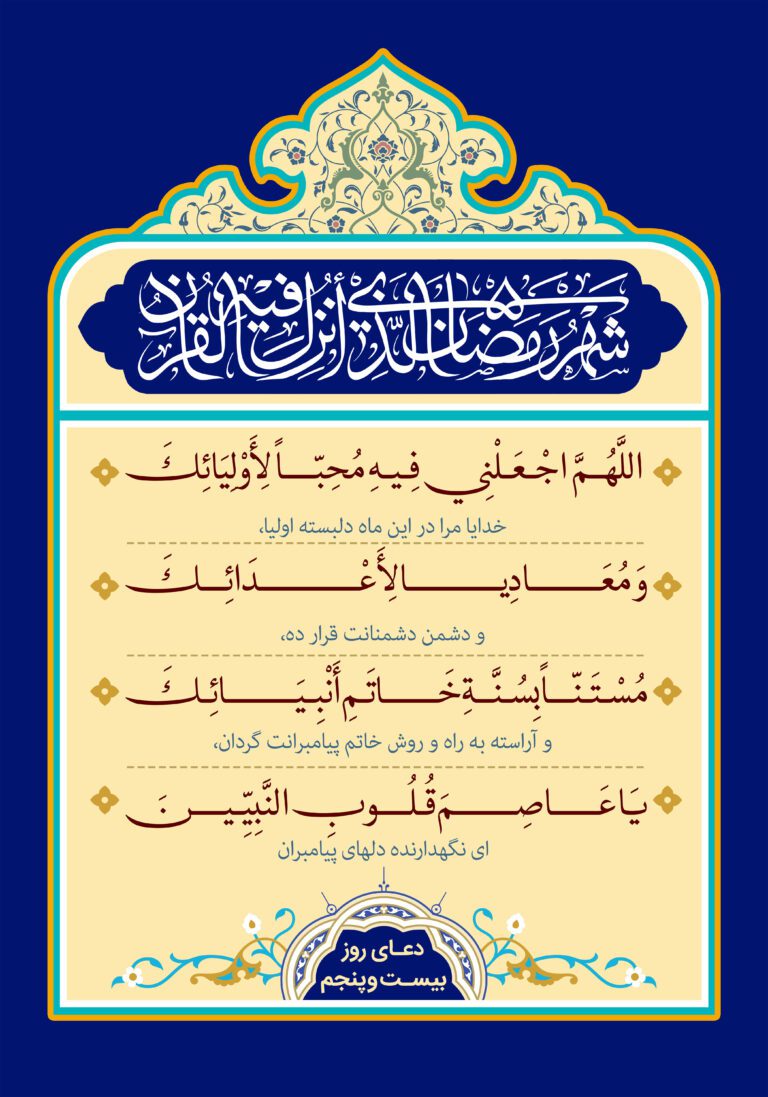 شهر رمضان الذي أنزل فيه القرآن
اللَّهُمَّ اجْعَلْنِي فِيهِ مُحِبّاً لِأَوْلِيَائِكَ
خدایا مرا در این ماه دلبسته اولیا،
وَ مُعَادِيا لِأَعْدَائِكَ
و دشمن دشمنانت قرار ده،
مُسْتَنّاً بِسُنَّةِ خَاتَمِ أَنْبِيَائِكَ
و آراسته به راه و روش خاتم پیامبرانت گردان،
يَا عَاصِمَ قُلُوبِ النَّبِيِّينَ
ای نگهدارنده دلهای پیامبران
دعای روز
بیست و پنجم